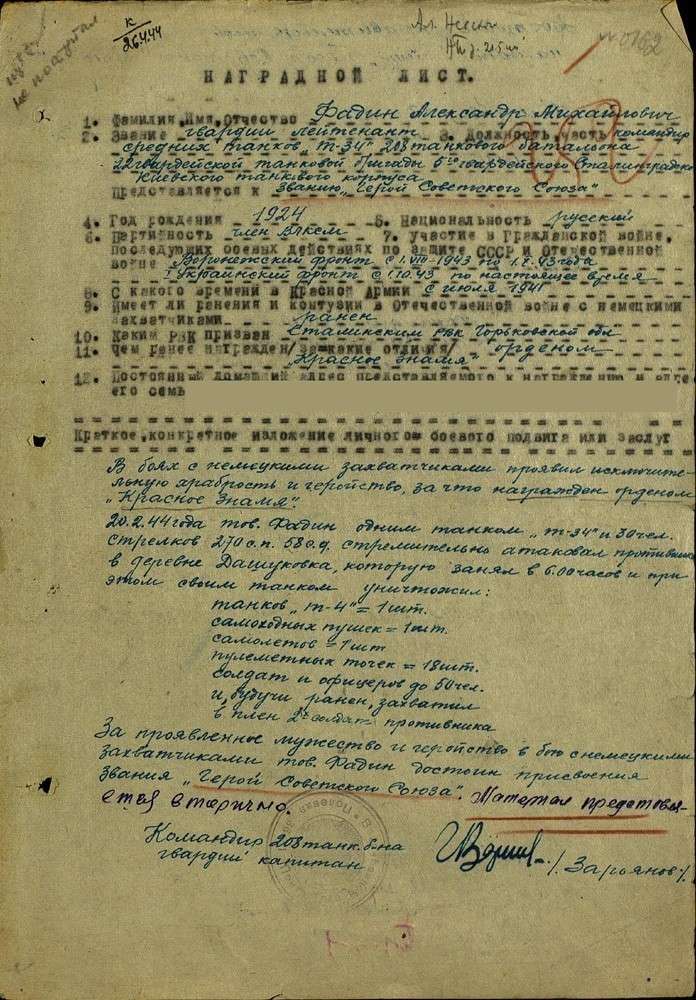 к
26.4.44
не получал
Ал. Невский
№0162
НАГРАДНОЙ ЛИСТ.
1. Фамилия, Имя, Отчество Фадин Александр Михайлович
2. Звание гвардии лейтенант 3. Должность, часть командир
средних танков „Т-34" 208 танкового баталъона
22 гвардейской танковой бригады 5го гвардейского Сталинградско
Киевского танкового корпуса
Представляется к Званию „Герой Советского Союза"
4. Год рождения 1924 5. Национальность русский
6. Партийность член ВЛКСМ 7. участие в Гражданской войне,
последующих боевых действиях по защите СССР и Отечественной
войне Воронежский фронт с 1.VIII-1943 по 1.X.43 года
I Украинский фронт с 1.10.43 по настоящее время
8. С какого времени в Красной Армии с июля 1941
9. Имеет ли ранения и контузии в Отечественной войне с немецкими
захватчиками ранен
10. Каким РВК призван Сталинским РВК Горьковской обл
11. Чем ранее награжден /за какие отличия/ орденом
„Красное знамя"
12. Постоянный домашний адрес представляемого к награждению и адрес
его семь
Краткое, конкретное изложение личного боевого подвига или заслуг
В боях с немецкими захватчиками проявил исключите-
льную храбрость и геройство, за что награжден орденом
„Красное Знамя".
20.2.44 года тов. Фадин одним танком „Т-34" и 30 чел.
стрелков 270 с.п. 58 с.д. стремительно атаковал противника
в деревне Дашуковка, которую занял в 6.00 часов и при
этом своим танком уничтожил:
танков „Т-4" = 1 шт.
самоходных пушек = 1 шт.
самолетов = 1 шт
пулеметных точек = 18 шт.
солдат и офицеров до 50 чел.
и, будучи ранен, захватил
в плен 2х солдат противника
За проявленное мужество и геройство в бою с немецкими
захватчиками тов. Фадин достоин присвоения
звания „Герой Советского Союза". Материал представля-
ется вторично.
Командир 208 танк. б-на
гвардии капитан /Зарьянов/.